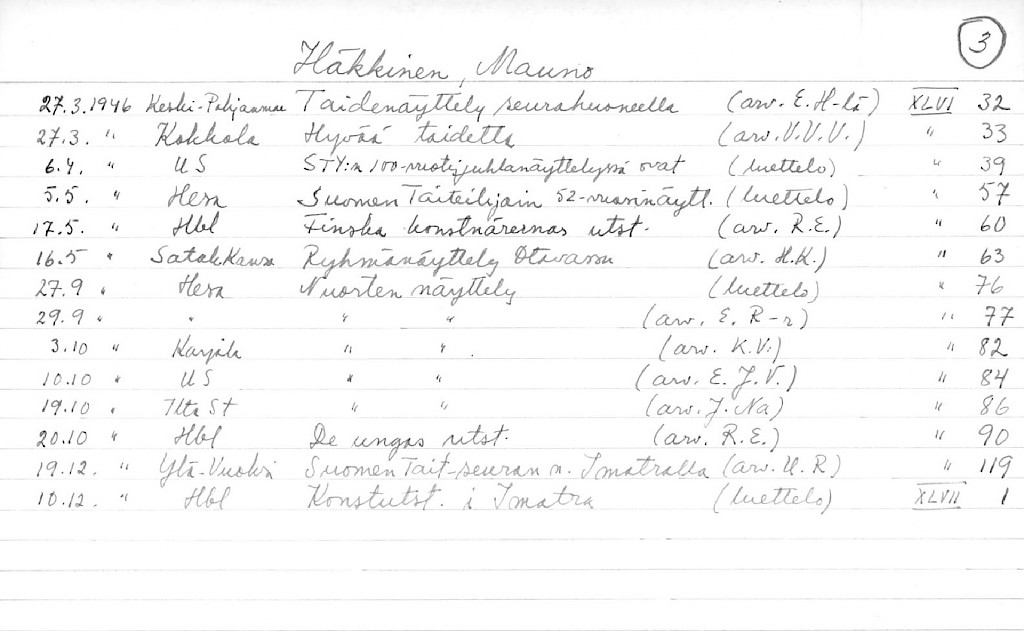 3
Häkkinen, Mauno
27.3.1946 Keski-Pohjanmaa Taidenäyttely seurahuoneella (arv. E. H-lä) XLVI 32
27.3. " Kokkola Hyvää taidetta (arv. V.V.V.) " 33
6.4. " US STY:n 100-vuotisjuhlanäyttelyssä ovat (luettelo) " 39
5.5. " Hesa Suomen Taiteilijain 52-vuosinäytt. (luettelo) " 57
17.5. " Hbl Finska konstnärernas utst. (arv. R.E.) " 60
16.5 " Satak Kansa Ryhmänäyttely Otavassa (arv. H.K.) " 63
27.9 " Hesa Nuorten näyttely (luettelo) " 76
29.9 " " " " (arv. E. R-r) " 77
3.10 " Karjala " " . (arv. K.V.) " 82
10.10 " US " " (arv. E.J.V.) " 84
19.10 " Ilta St " " (arv. J. Na) " 86
20.10 " Hbl De ungas utst. (arv. R.E.) " 90
19.12. " Ylä-Vuoksi Suomen Tait-seuran n. Imatralla (arv. U. R) " 119
10.12. " Hbl Konstutst. i Imatra (luettelo) XLVII 1